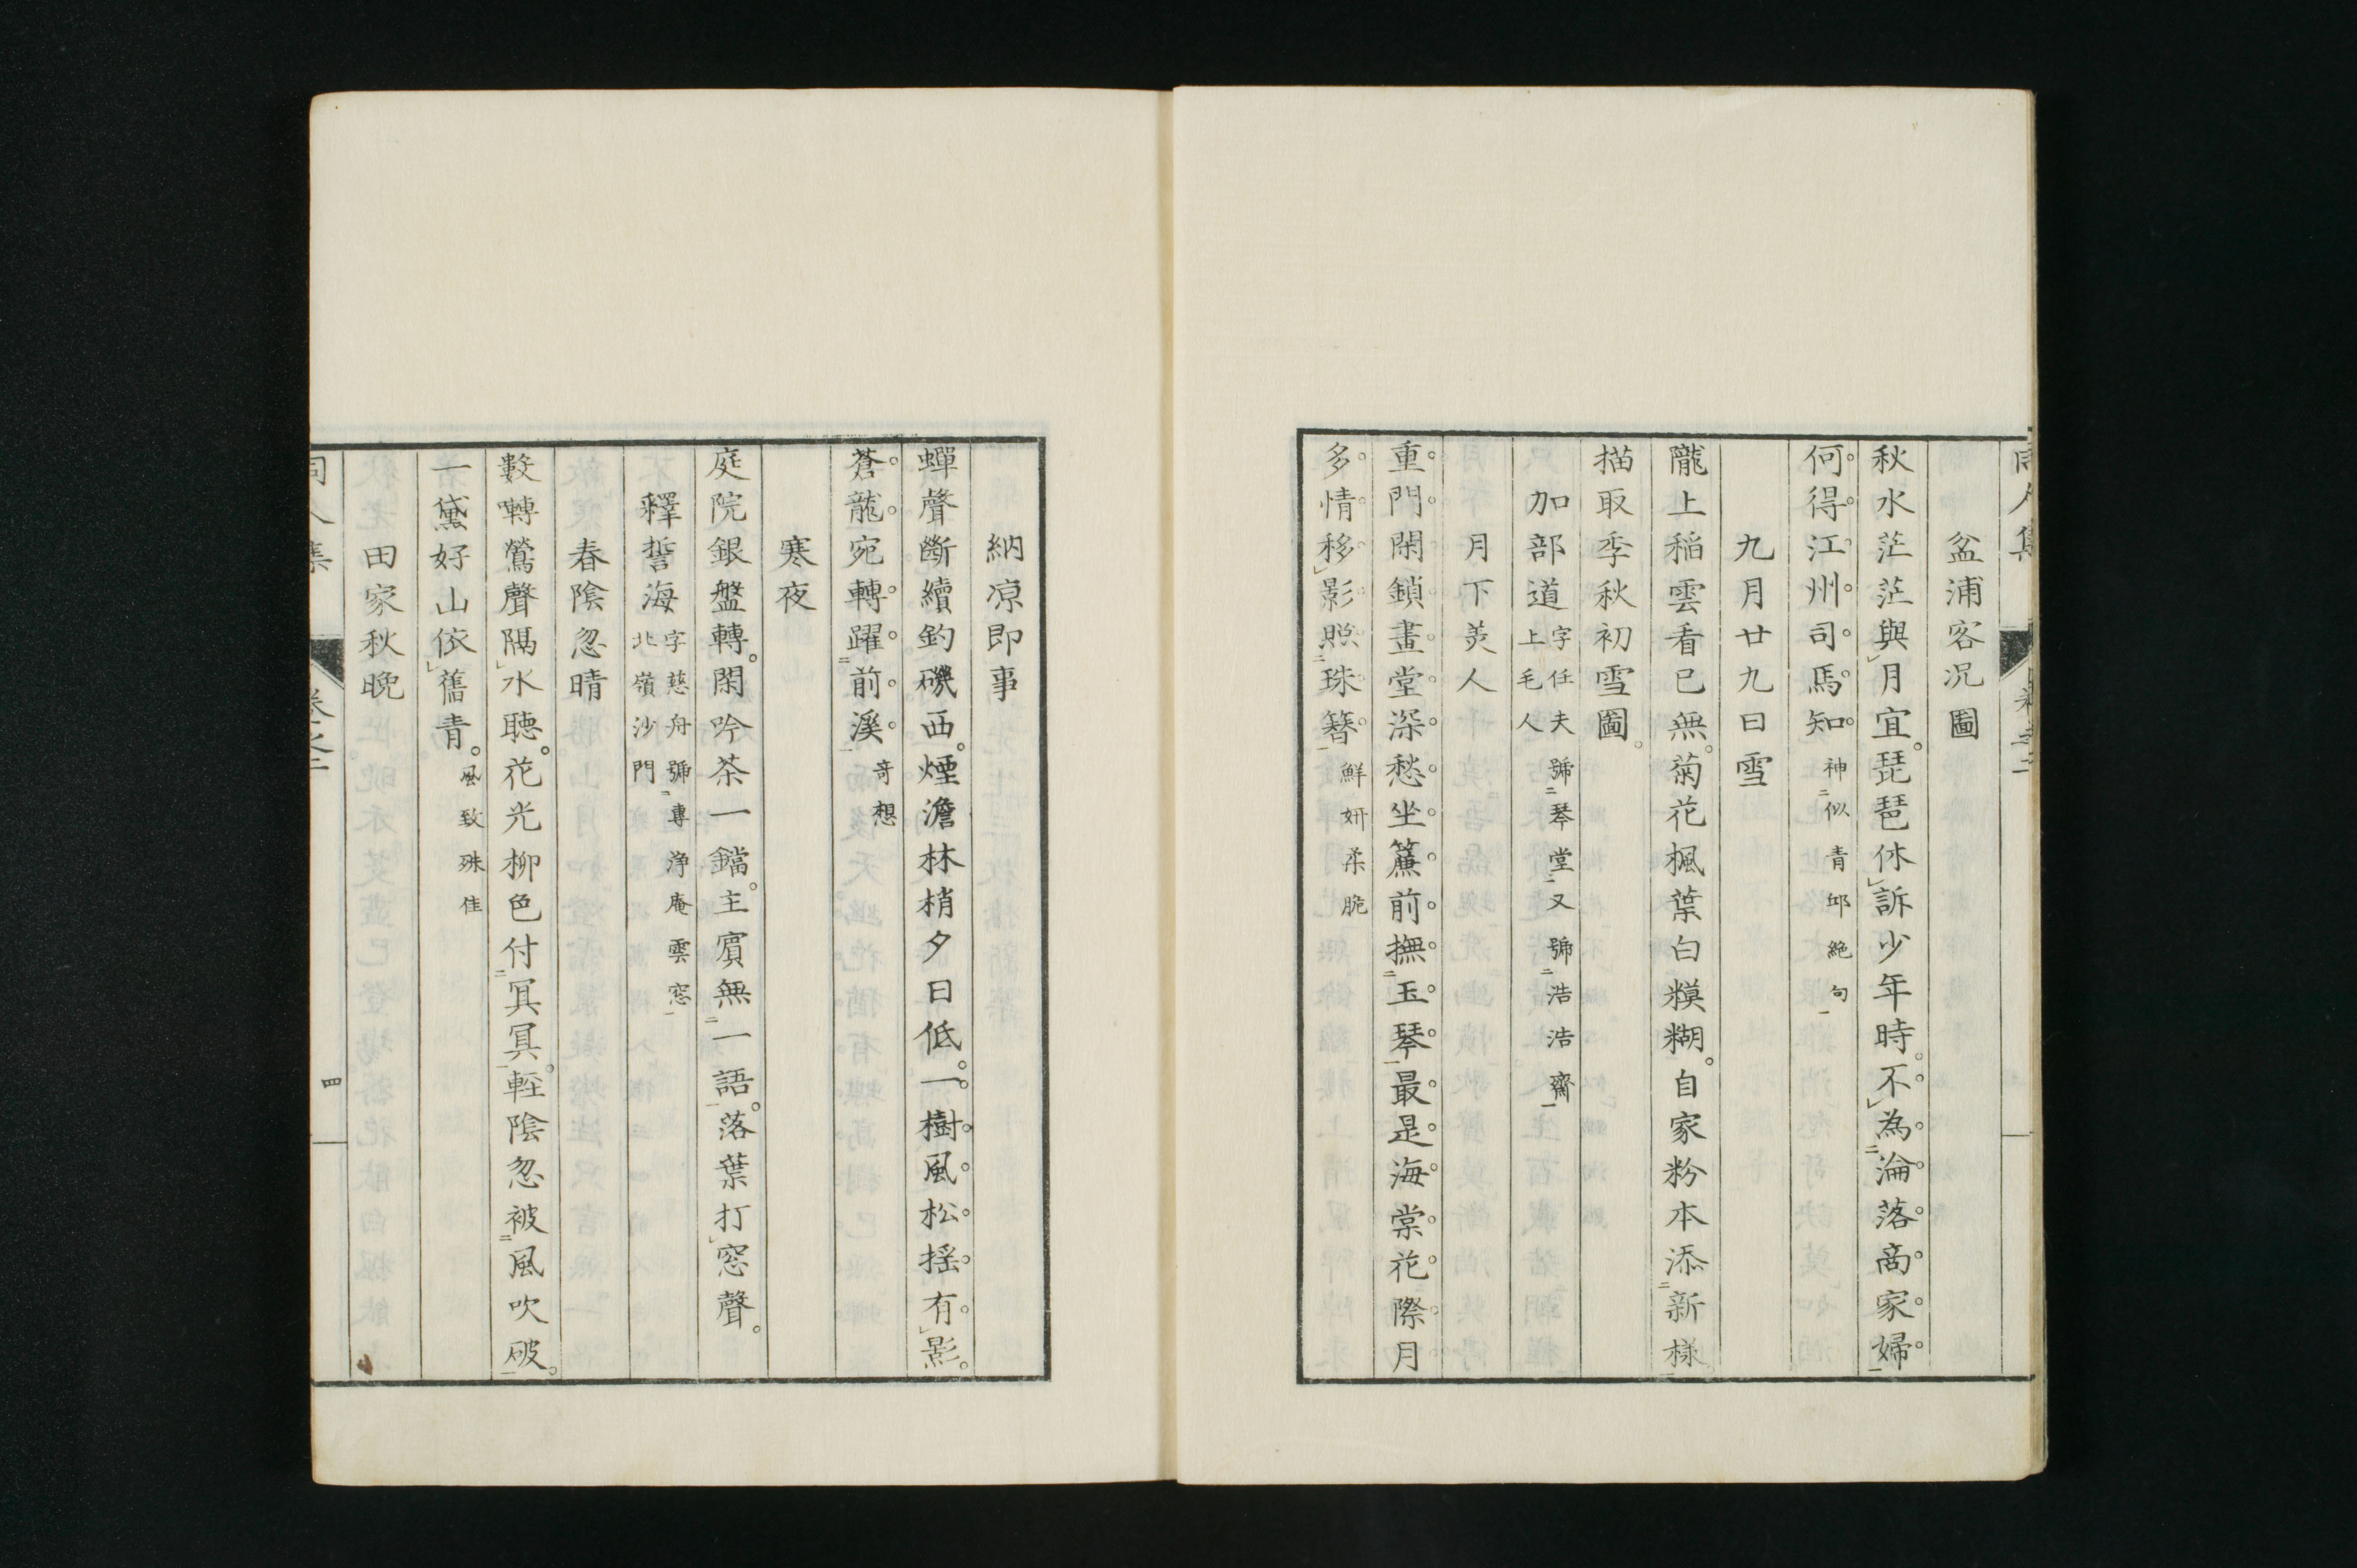 盆浦客況圖
秋水茫茫與月宜琵琶休訴少年時不為淪落商家婦
何得江州司馬知 神似青邱絶句
九月廿九日雪
隴上稲雲看已無菊花楓葉白糢糊自家粉本添新様
描取季秋初雪圖
加部道 字任夫號琴堂又號浩浩齋
上毛人
月下美人
重門閑鎖畫堂深愁坐簾前撫玉琴最是海棠花際月
多情移影照珠簪 鮮妍柔脆
納凉即事
蟬聲斷續釣磯西煙澹林梢夕日低一樹風松揺有影
蒼龍宛轉躍前溪 奇想
寒夜
庭院銀盤轉閑吟茶一鐺主賓無一語落葉打窓聲
釋誓海 字慈舟號專浄庵雲窓
北嶺沙門
春陰忽晴
數囀鶯聲隔水聴花光柳色付冥冥輕陰忽被風吹破
一黛好山依舊青 風致殊佳
田家秋晩
四